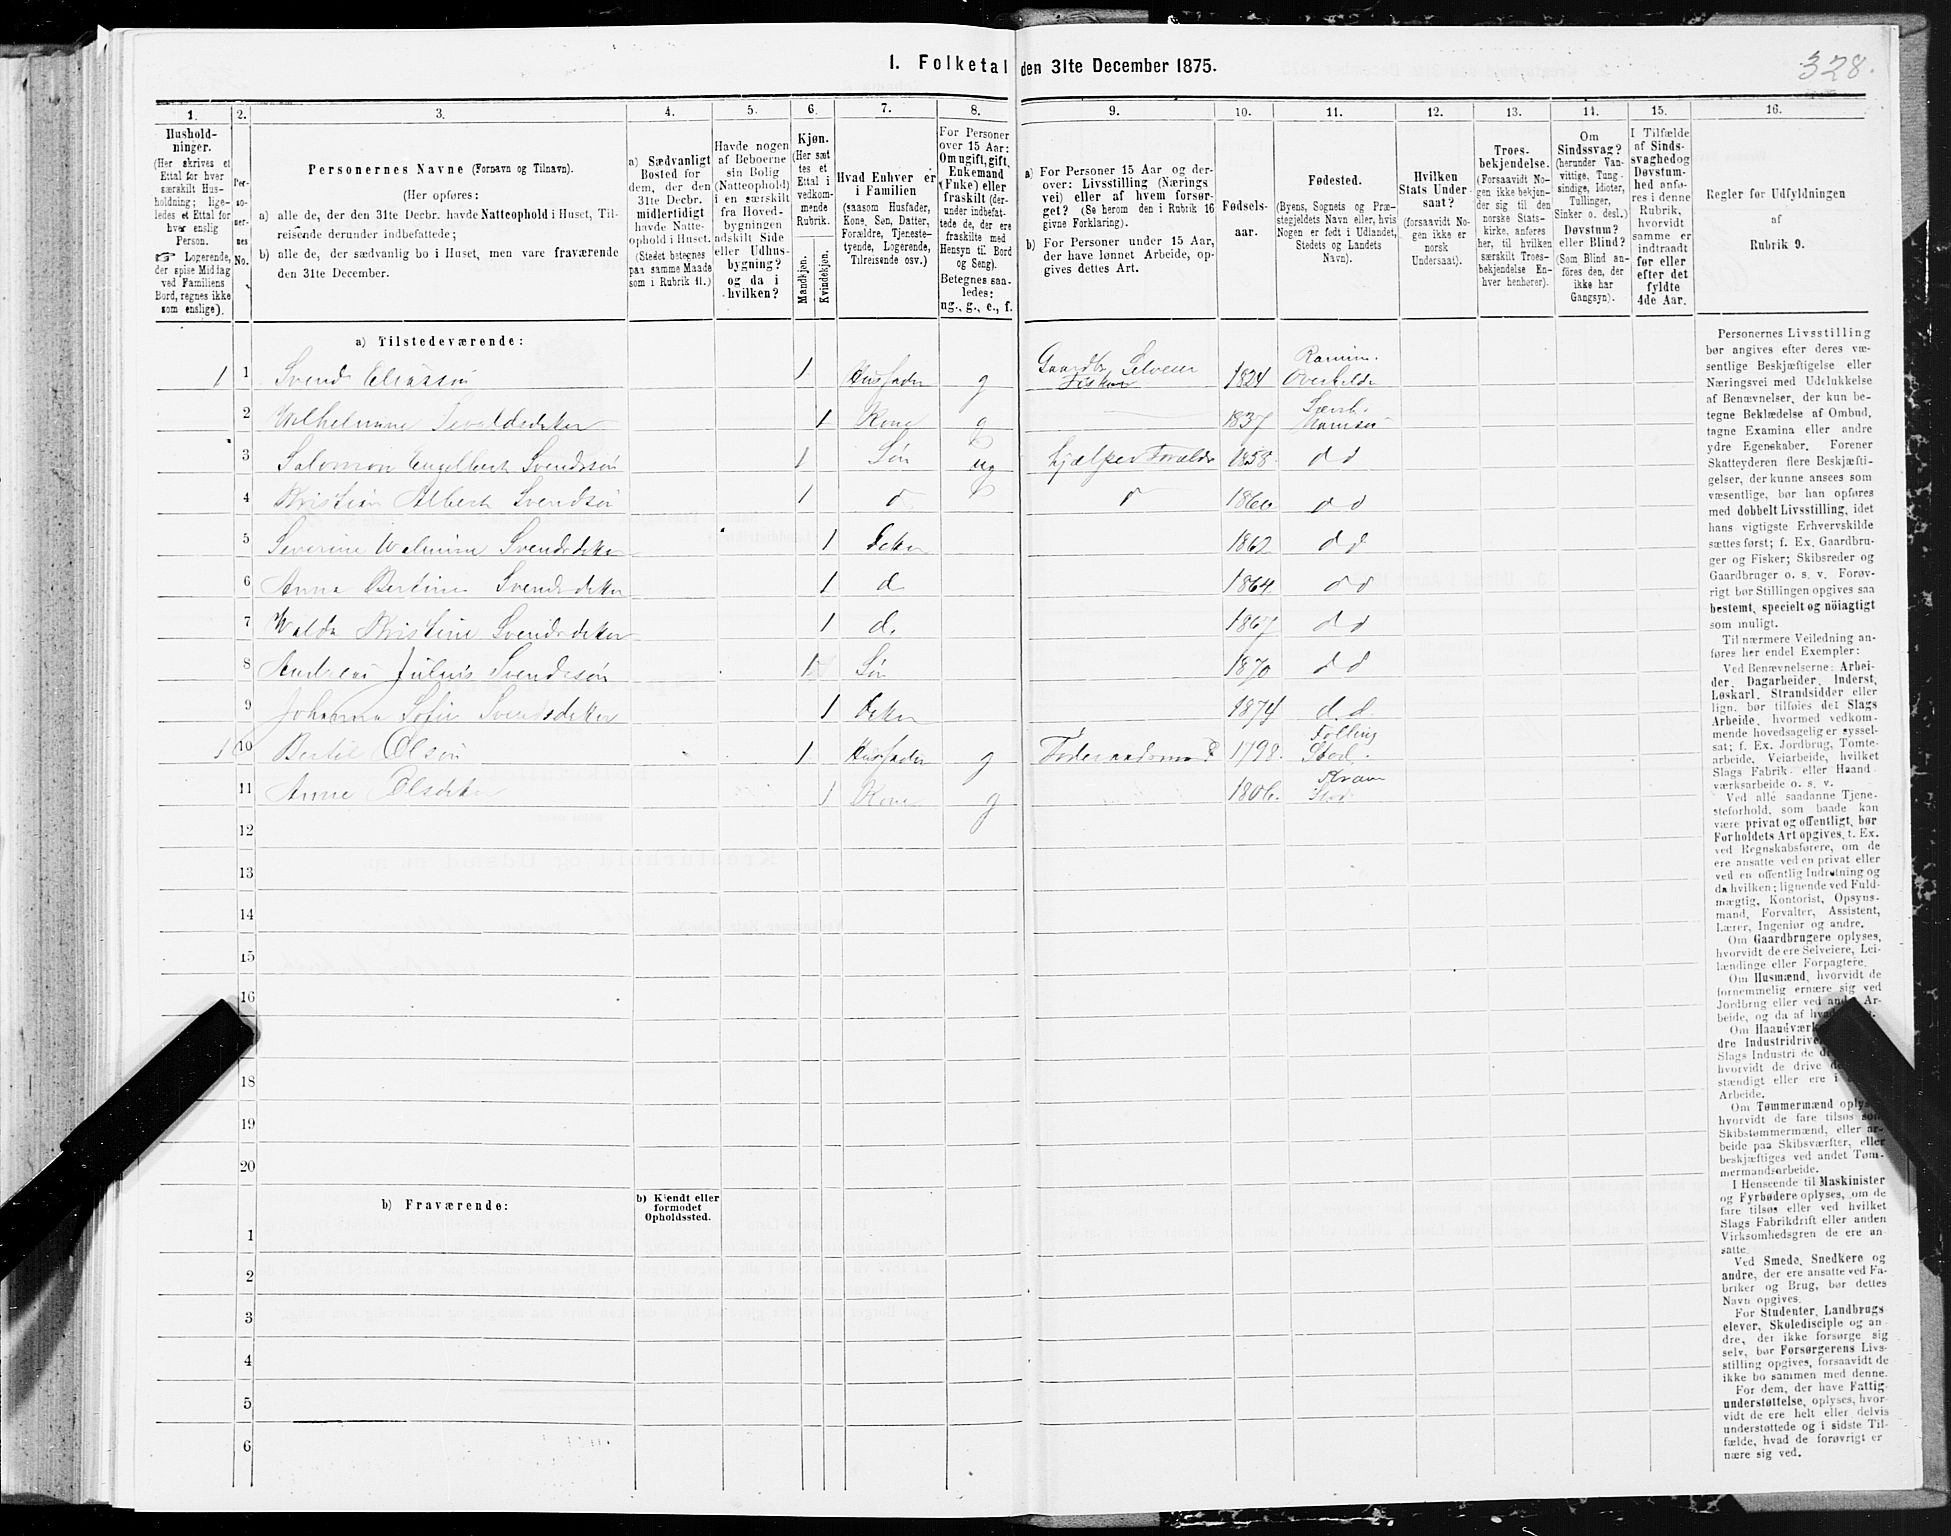 1. Folketal den 31te December 1875.
328.
1.
2.
3.
4.
5.
6.
7.
8.
9.
10.
11.
12.
13.
14.
15.
16.
Hushold-
ninger.
(Her skrives et
Ettal for hver
særskilt Hus-
holdning; lige-
ledes et Ettal for
hver enslig
Person.
☞ Logerende,
der spise Middag
ved Familiens
Bord, regnes ikke
som enslige).
Per-
so-
ner-
nes
No.
Personernes Navne (Fornavn og Tilnavn).
(Her opføres:
a) alle de, der den 31te Decbr. havde Natteophold i Huset, Til-
reisende derunder indbefattede;
b) alle de, der sædvanlig bo i Huset, men vare fraværende
den 31te December.
a) Sædvanligt
Bosted for
dem, der den
31te Decbr.
midlertidigt
havde Natte-
ophold i Huset.
(Stedet betegnes
paa samme Maade
som i Rubrik 11.)
Havde nogen
af Beboerne
sin Bolig
(Natteophold)
i en særskilt
fra Hoved-
bygningen
adskilt Side
eller Udhus-
bygning?
og da i
hvilken?
Kjøn.
(Her sæt
tes et
Ettal i
vedkom-
mende
Rubrik.
Mandkjøn.
Kvindekjøn.
Hvad Enhver er
i Familien
(saasom Husfader,
Kone, Søn, Datter,
Forældre, Tjeneste-
tyende, Logerende,
Tilreisende osv.)
For Personer
over 15 Aar:
Om ugift, gift,
Enkemand
(Enke) eller
fraskilt (der-
under indbefat-
tede de, der ere
fraskilte med
Hensyn til Bord
og Seng).
Betegnes saa-
ledes:
ug., g., e., f.
a) For Personer 15 Aar og der-
over: Livsstilling (Nærings
vei) eller af hvem forsør-
get? (Se herom den i Rubrik 16
givne Forklaring).
b) For Personer under 15 Aar,
der have lønnet Arbeide, op-
gives dettes Art.
Fødsels-
aar.
Fødested.
(Byens, Sognets og Præ-
stegjeldets Navn eller, hvis
Nogen er født i Udlandet,
Stedets og Landets
Navn).
Hvilken
Stats Under-
saat?
(forsaavidt No-
gen ikke er
norsk
Undersaat).
Troes-
bekjendelse.
(Forsaavidt No-
gen ikke bekjen-
der sig til den
norske Stats-
kirke, anføres
her, til hvilken
særskilt Troes-
bekjendelse En-
hver henhører).
Om
Sindssvag?
(herunder Van-
vittige, Tung-
sindige, Idioter,
Tullinger,
Sinker o. desl.)
Døvstum?
eller Blind?
(Som Blind an-
føres den, der
ikke har
Gangsyn).
I Tilfælde
af Sinds-
svaghed og
Døvstum-
hed anfø-
res i denne
Rubrik,
hvorvidt
samme er
indtraadt
før eller
efter det
fyldte
4de Aar.
Regler for Udfyldningen
af
Rubrik 9.
a) Tilstedeværende:
1 1 Svend Eliassøn 1 Husfader g Gaardbr. Selveier Fisker 1824 Overhalden
2 Wilhelmine 1 Kone g 1837
3 Salomon Engelbert Svendssøn 1 Søn ug hjælper 1858 d d
4 Kristian Albert Svendsøn 1 d d 1860 d d
5 Severine Svendsdtter 1 1862 d d
6 Anna Bertine Svendsdtter 1 d 1864 d d
7 Kristine Svendsdtter 1 d. 1867 d d
8 Andreas Julius Svendssøn 1 Søn 1870 d d
9 Johanna Sofie Svendsdtter 1 1874 d. d.
1 10 Bertil Olsøn 1 Husfader g Foderaadsmand 1798 Stod
11 Anne Olsdtter 1 Kone g 1806. Stod
12
13
14
15
16
18
19
20
b) Fraværende:
b) Kjendt eller
formodet
Opholdssted.
1
2
3
4
5
6
Personernes Livsstilling
bør angives efter deres væ-
sentlige Beskjæftigelse eller
Næringsvei med Udelukkelse
af Benævnelser, der kun be-
tegne Beklædelse af Ombud,
tagne Examina eller andre
ydre Egenskaber. Forener
Skatteyderen flere Beskjæfti-
gelser, der kunne ansees som
væsentlige, bør han opføres
med dobbelt Livsstilling, idet
hans vigtigste Erhvervskilde
sættes først; f. Ex. Gaardbru-
ger og Fisker; Skibsreder og
Gaardbruger o. s. v. Forøv-
rigt bør Stillingen opgives saa
bestemt, specielt og nøiagtigt
som muligt.
Til nærmere Veiledning an-
føres her endel Exempler:
Ved Benævnelserne: Arbei-
der, Dagarbeider, Inderst,
Løskarl, Strandsidder eller
lign. bør tilføies det Slags
Arbeide, hvormed vedkom-
mende hovedsagelig er syssel-
sat; f. Ex. Jordbrug, Tomte-
arbeide, Veiarbeide, hvilket
Slags Fabrik- eller Haand
værksarbeide o. s. v.
Ved alle saadanne Tjene-
steforhold, som baade kan
være privat og offentligt, bør
Forholdets Art opgives, t. Ex.
ved Regnskabsførere, om de
ere ansatte ved en privat eller
ved en offentlig Indretning og
da hvilken; lignende ved Fuld-
mægtig, Kontorist, Opsyns-
mand, Forvalter, Assistent,
Lærer, Ingeniør og andre.
Om Gaardbrugere oplyses,
hvorvidt de ere Selveiere, Lei-
lændinge eller Forpagtere.
Om Husmænd, hvorvidt de
fornemmelig ernære sig ved
Jordbrug eller ved Ar-
beide, og da af
Om Haandværk
dre Industridrive
Slags Industri de
hvorvidt de drive
stændigt eller ere i
Arbeide.
Om Tømmermænd oplyses
hvorvidt de fare tilsøs som
Skibstømmermænd, eller ar-
beide paa Skibsværfter, eller
beskjæftiges ved andet Tøm-
mermandsarbeide.
I Henseende til Maskinister
og Fyrbødere oplyses, om de
fare tilsøs eller ved hvilket
Slags Fabrikdrift eller anden
Virksomhedsgren de ere an-
satte.
Ved Smede, Snedkere og
andre, der ere ansatte ved Fa-
briker og Brug, bør dettes
Navn opgives.
For Studenter, Landbrugs
elever, Skoledisciple og an-
dre, der ikke forsørge sig
selv, bør Forsørgerens Livs-
stilling opgives, forsaavidt de
ikke bo sammen med denne.
For dem, der have Fattig-
understøttelse, oplyses, hvor-
vidt de ere helt eller delvis
understøttede og i sidste Til-
fælde, hvad de forøvrigt er
nære sig ved.